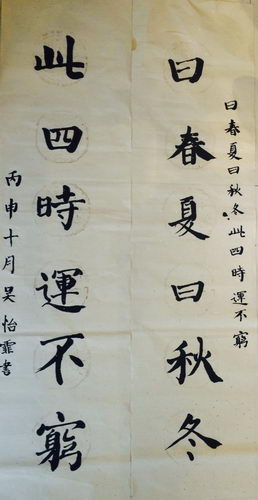 曰春夏曰秋冬此四時運不窮
曰春夏曰秋冬
此四時運不窮
丙申十月吴怡霏書